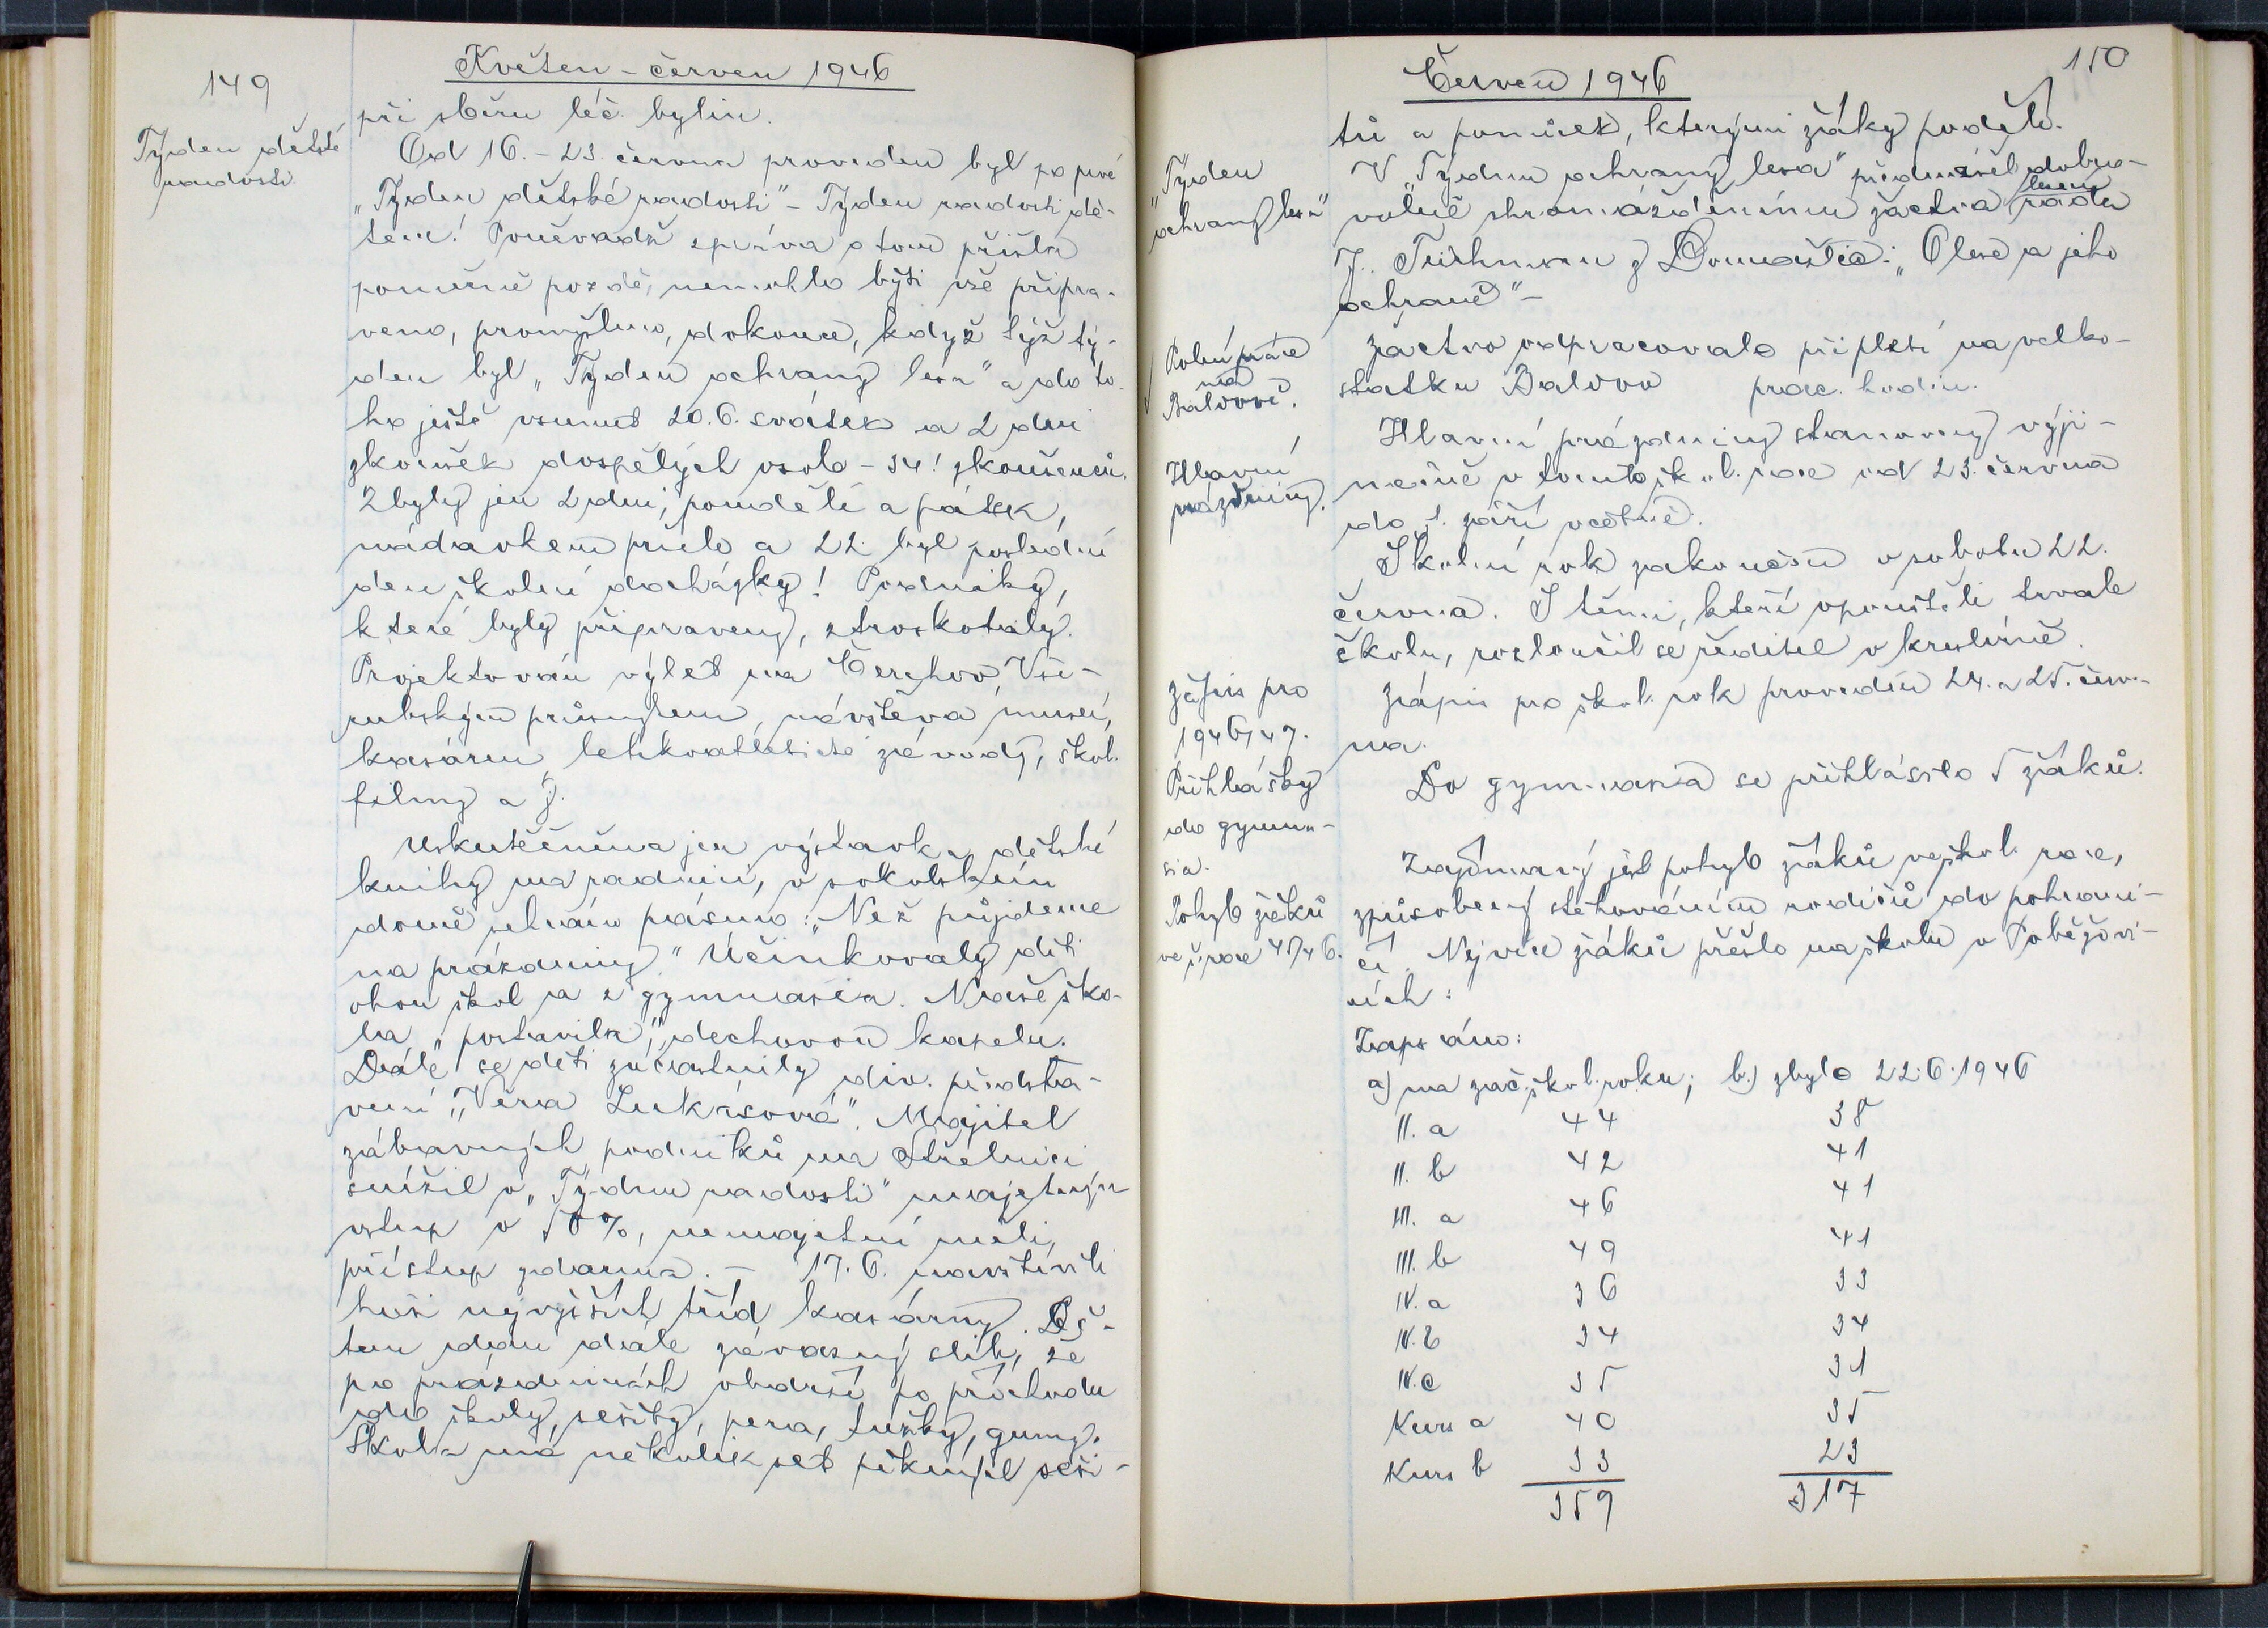 149
Květen - červen 1946
Týden dětské
radosti.
při sběru léč. bylin.
Od 16. - 23. června proveden byl po prvé
„Týden dětské radosti" - Týden radosti dě-
tem! Poněvadž zpráva o tom přišla
poměrně pozdě, nemohlo býti vše připra-
veno, promyšleno, dokonce, když týž tý-
den byl „Týden ochrany lesa" a do to-
ho ještě vsunut 20.6. svátek a 2 dni
zkoušek dospělých osob - 34! zkoušenců.
Zbyly jen 2 dni, pondělí a pátek,
nádavkem pršelo a 22. byl poslední
den školní docházky! Podniky,
které byly připraveny, ztroskotaly.
Projektován výlet na Čerchov, Vše-
rubským průsmykem, návštěva museí,
kasáren, lehkoatletické závody, škol.
filmy a j.
Uskutečněna jen výstavka dětské
knihy na radnici, v sokolském
domě sehráno pásmo: „Než půjdeme
na prázdniny." Účinkovaly děti
obou škol a z gymnasia. Naše ško-
la „postavila" dechovou kapelu.
Dále se děti zúčastnily div. předsta-
vení „Věra Lukášová". Majitel
zábavných podniků na Střelnici
snížil v „Týdnu radosti" majetným
vstup o 50%, nemajetní měli
přístup zdarma. - 17.6. navštívili
hoši nejvyšších tříd kasárny.
tem dán dále závazný slib, že
po prázdninách obdrží po příchodu
do školy, sešity, pera, tužky, gumy.
Škola má několik set pěkných seši-
150
Červen 1946
tů a pomůcek, kterými žáky podělí.
„Týden
ochrany lesa"
V „Týdnu ochrany lesa" přednášel dobro-
volně shromážděnému žactvu lesní rada
J. Teichman z Domažlic: „O lese a jeho
ochraně" -
Polní práce
na
Baldově.
Žactvo odpracovalo při pletí na velko-
statku Baldov prac. hodin.
Hlavní
prázdniny.
Hlavní prázdniny stanoveny výji-
mečně v tomto škol. roce od 23. června
do 1. září včetně.
Školní rok zakončen v sobotu 22.
června. S těmi, kteří opouštěli trvale
školu, rozloučil se ředitel v kreslírně.
Zápis pro
1946/47.
Zápis pro škol. rok proveden 24. a 25. červ-
na.
Přihlášky
do gymna-
sia.
Do gymnasia se přihlásilo 5 žáků.
Pohyb žáků
ve š. roce 45/46.
Zajímavý jest pohyb žáků ve škol. roce,
způsobený stěhováním rodičů do pohrani-
čí. Nejvíce žáků přešlo na školu v Poběžovi-
cích:
Zapsáno:
a) na zač. škol. roku; b.) zbylo 22.6.1946
II. a 44 38
II. b 42 41
III. a 46 41
III. b 49 41
IV. a 36 33
IV. b 34 34
IV. c 35 31
Kurs a 40 35
Kurs b 33 23
359 317